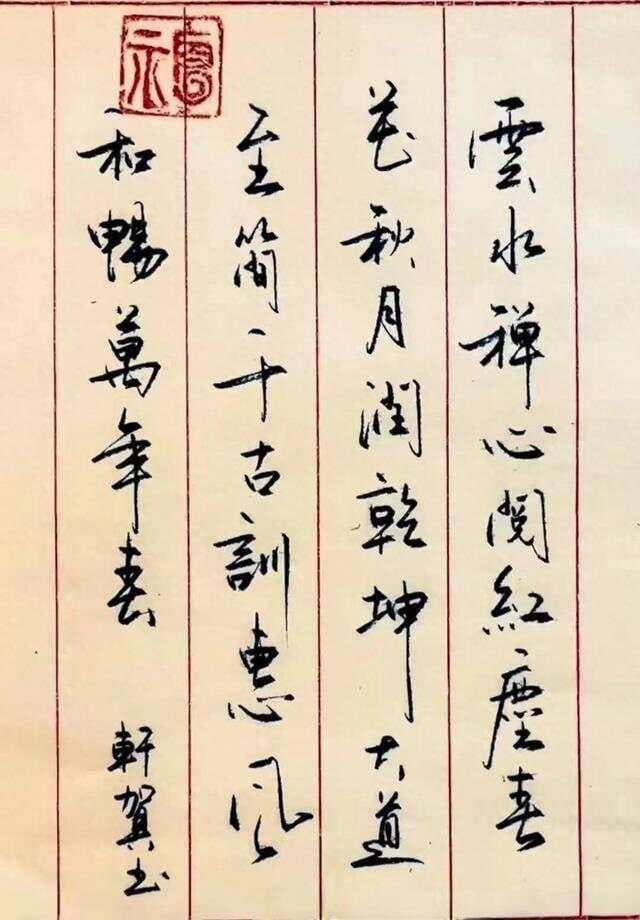 雲水禪心閱紅塵春
花秋月潤乾坤大道
至簡千古訓惠風
福
和暢萬年春
軒賀书